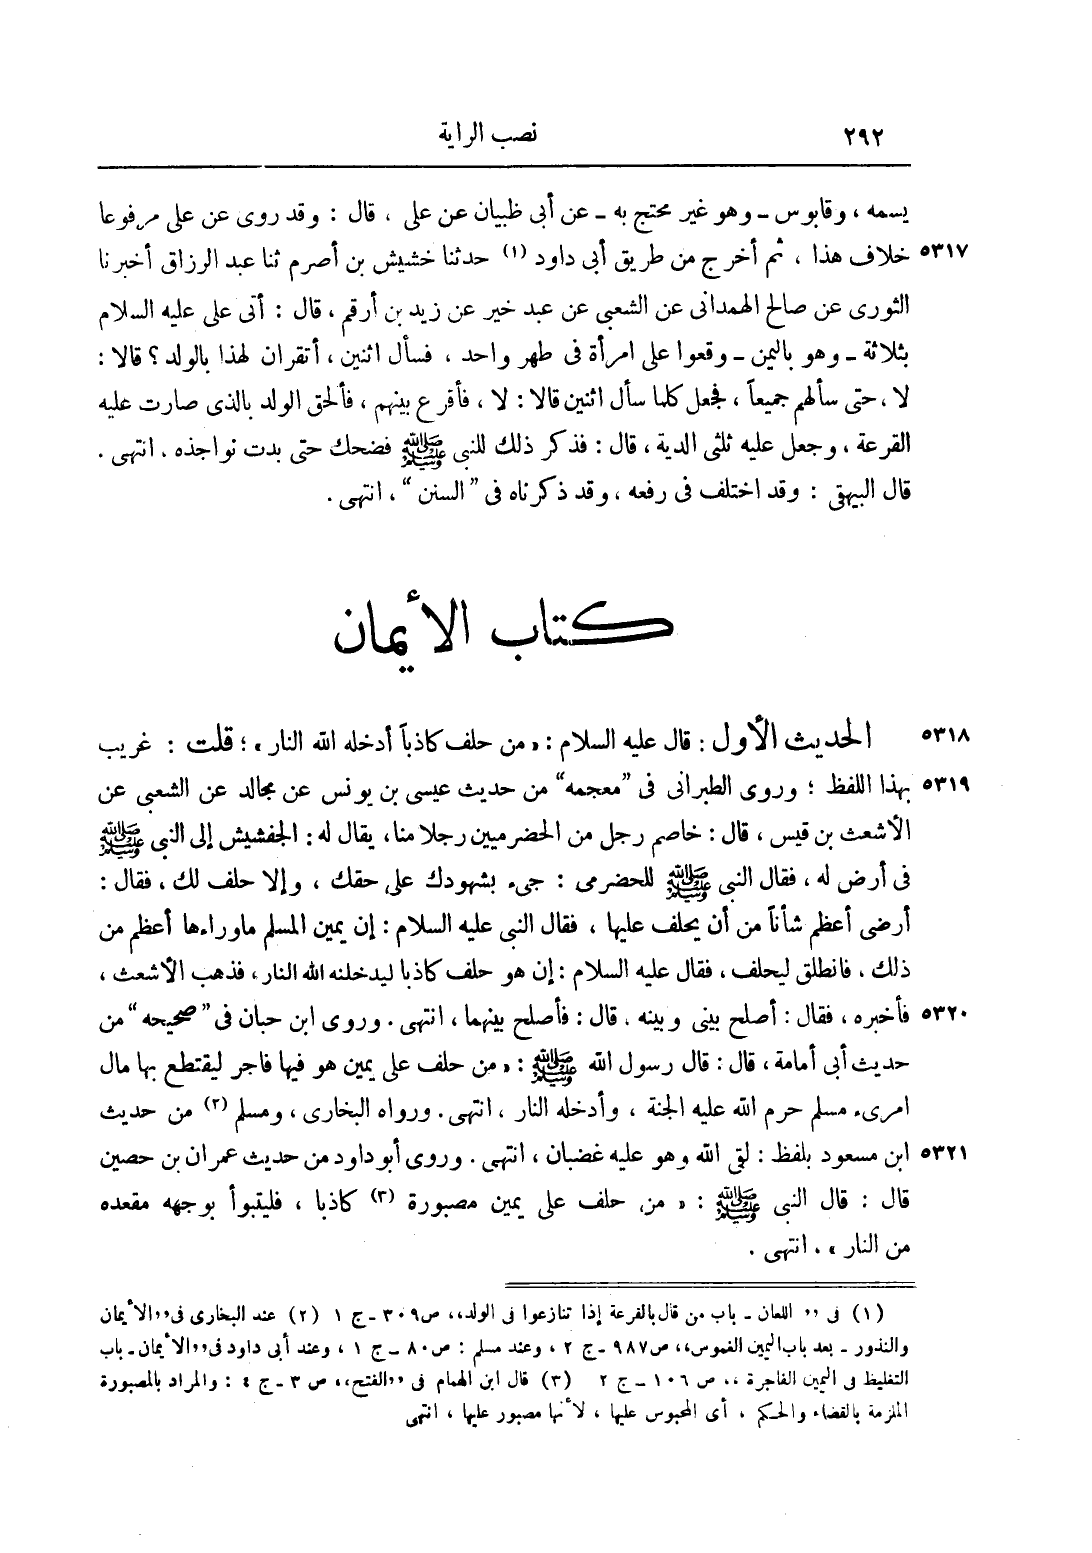 ٢٩٢ نصب الراية
يسمه ، وقابوس ــ وهو غير محتج به ــ عن أبى ظبيان عن على ، قال : وقد روى عن على مرفوعا
٥٣١٧ خلاف هذا ، ثم أخرج من طريق أبى داود (١) حدثنا خشيش بن أصرم ثنا عبد الرزاق أخبرنا
الثورى عن صالح الهمدانى عن الشعبى عن عبد خير عن زيد بن أرقم ، قال : أتى على عليه السلام
بثلاثة ــ وهو باليمن ــ وقعوا على امرأة فى طهر واحد ، فسأل اثنين ، أتقران لهذا بالولد ؟ قالا :
لا ، حتى سألهم جميعاً ، فجعل كلما سأل اثنين قالا : لا ، فأقرع بينهم ، فألحق الولد بالذى صارت عليه
القرعة ، وجعل عليه ثلثى الدية ، قال : فذكر ذلك للنبى ﷺ فضحك حتى بدت نواجذه . انتهى .
قال البيهقى : وقد اختلف فى رفعه ، وقد ذكرناه فى "السنن" ، انتهى .
كتاب الأيمان
٥٣١٨ الحديث الأول : قال عليه السلام : « من حلف كاذباً أدخله الله النار » ؛ قلت : غريب
٥٣١٩ بهذا اللفظ ؛ وروى الطبرانى فى "معجمه" من حديث عيسى بن يونس عن مجالد عن الشعبى عن
الأشعث بن قيس ، قال : خاصم رجل من الحضرميين رجلا منا ، يقال له : الجفشيش إلى النبى ﷺ
فى أرض له ، فقال النبى ﷺ للحضرمى : جىء بشهودك على حقك ، وإلا حلف لك ، فقال :
أرضى أعظم شأناً من أن يحلف عليها ، فقال النبى عليه السلام : إن يمين المسلم ماوراءها أعظم من
ذلك ، فانطلق ليحلف ، فقال عليه السلام : إن هو حلف كاذبا ليدخلنه الله النار ، فذهب الأشعث ،
٥٣٢٠ فأخبره ، فقال : أصلح بينى وبينه ، قال : فأصلح بينهما ، انتهى . وروى ابن حبان فى "صحيحه" من
حديث أبى أمامة ، قال : قال رسول الله ﷺ : « من حلف على يمين هو فيها فاجر ليقتطع بها مال
امرىء مسلم حرم الله عليه الجنة ، وأدخله النار ، انتهى . ورواه البخارى ، ومسلم (٢) من حديث
٥٣٢١ ابن مسعود بلفظ : لقى الله وهو عليه غضبان ، انتهى . وروى أبو داود من حديث عمران بن حصين
قال : قال النبى ﷺ : « من حلف على يمين مصبورة (٣) كاذبا ، فليتبوأ بوجهه مقعده
من النار » . انتهى .
(١) فى ,, اللعان ــ باب من قال بالقرعة إذا تنازعوا فى الولد،، ص ٣٠٩ ــ ج ١ (٢) عند البخارى فى ,,الأيمان
والنذور ــ بعد باب اليمين الغموس،، ص ٩٨٧ ــ ج ٢ ، وعند مسلم : ص ٨٠ ــ ج ١ ، وعند أبى داود فى ,,الأيمان ــ باب
التغليظ فى اليمين الفاجرة ،، ص ١٠٦ ــ ج ٢ (٣) قال ابن الهمام فى ,,الفتح،، ص ٣ ــ ج ٤ : والمراد بالمصبورة
الملزمة بالقضاء والحكم ، أى المحبوس عليها ، لأنها مصبور عليها ، انتهى